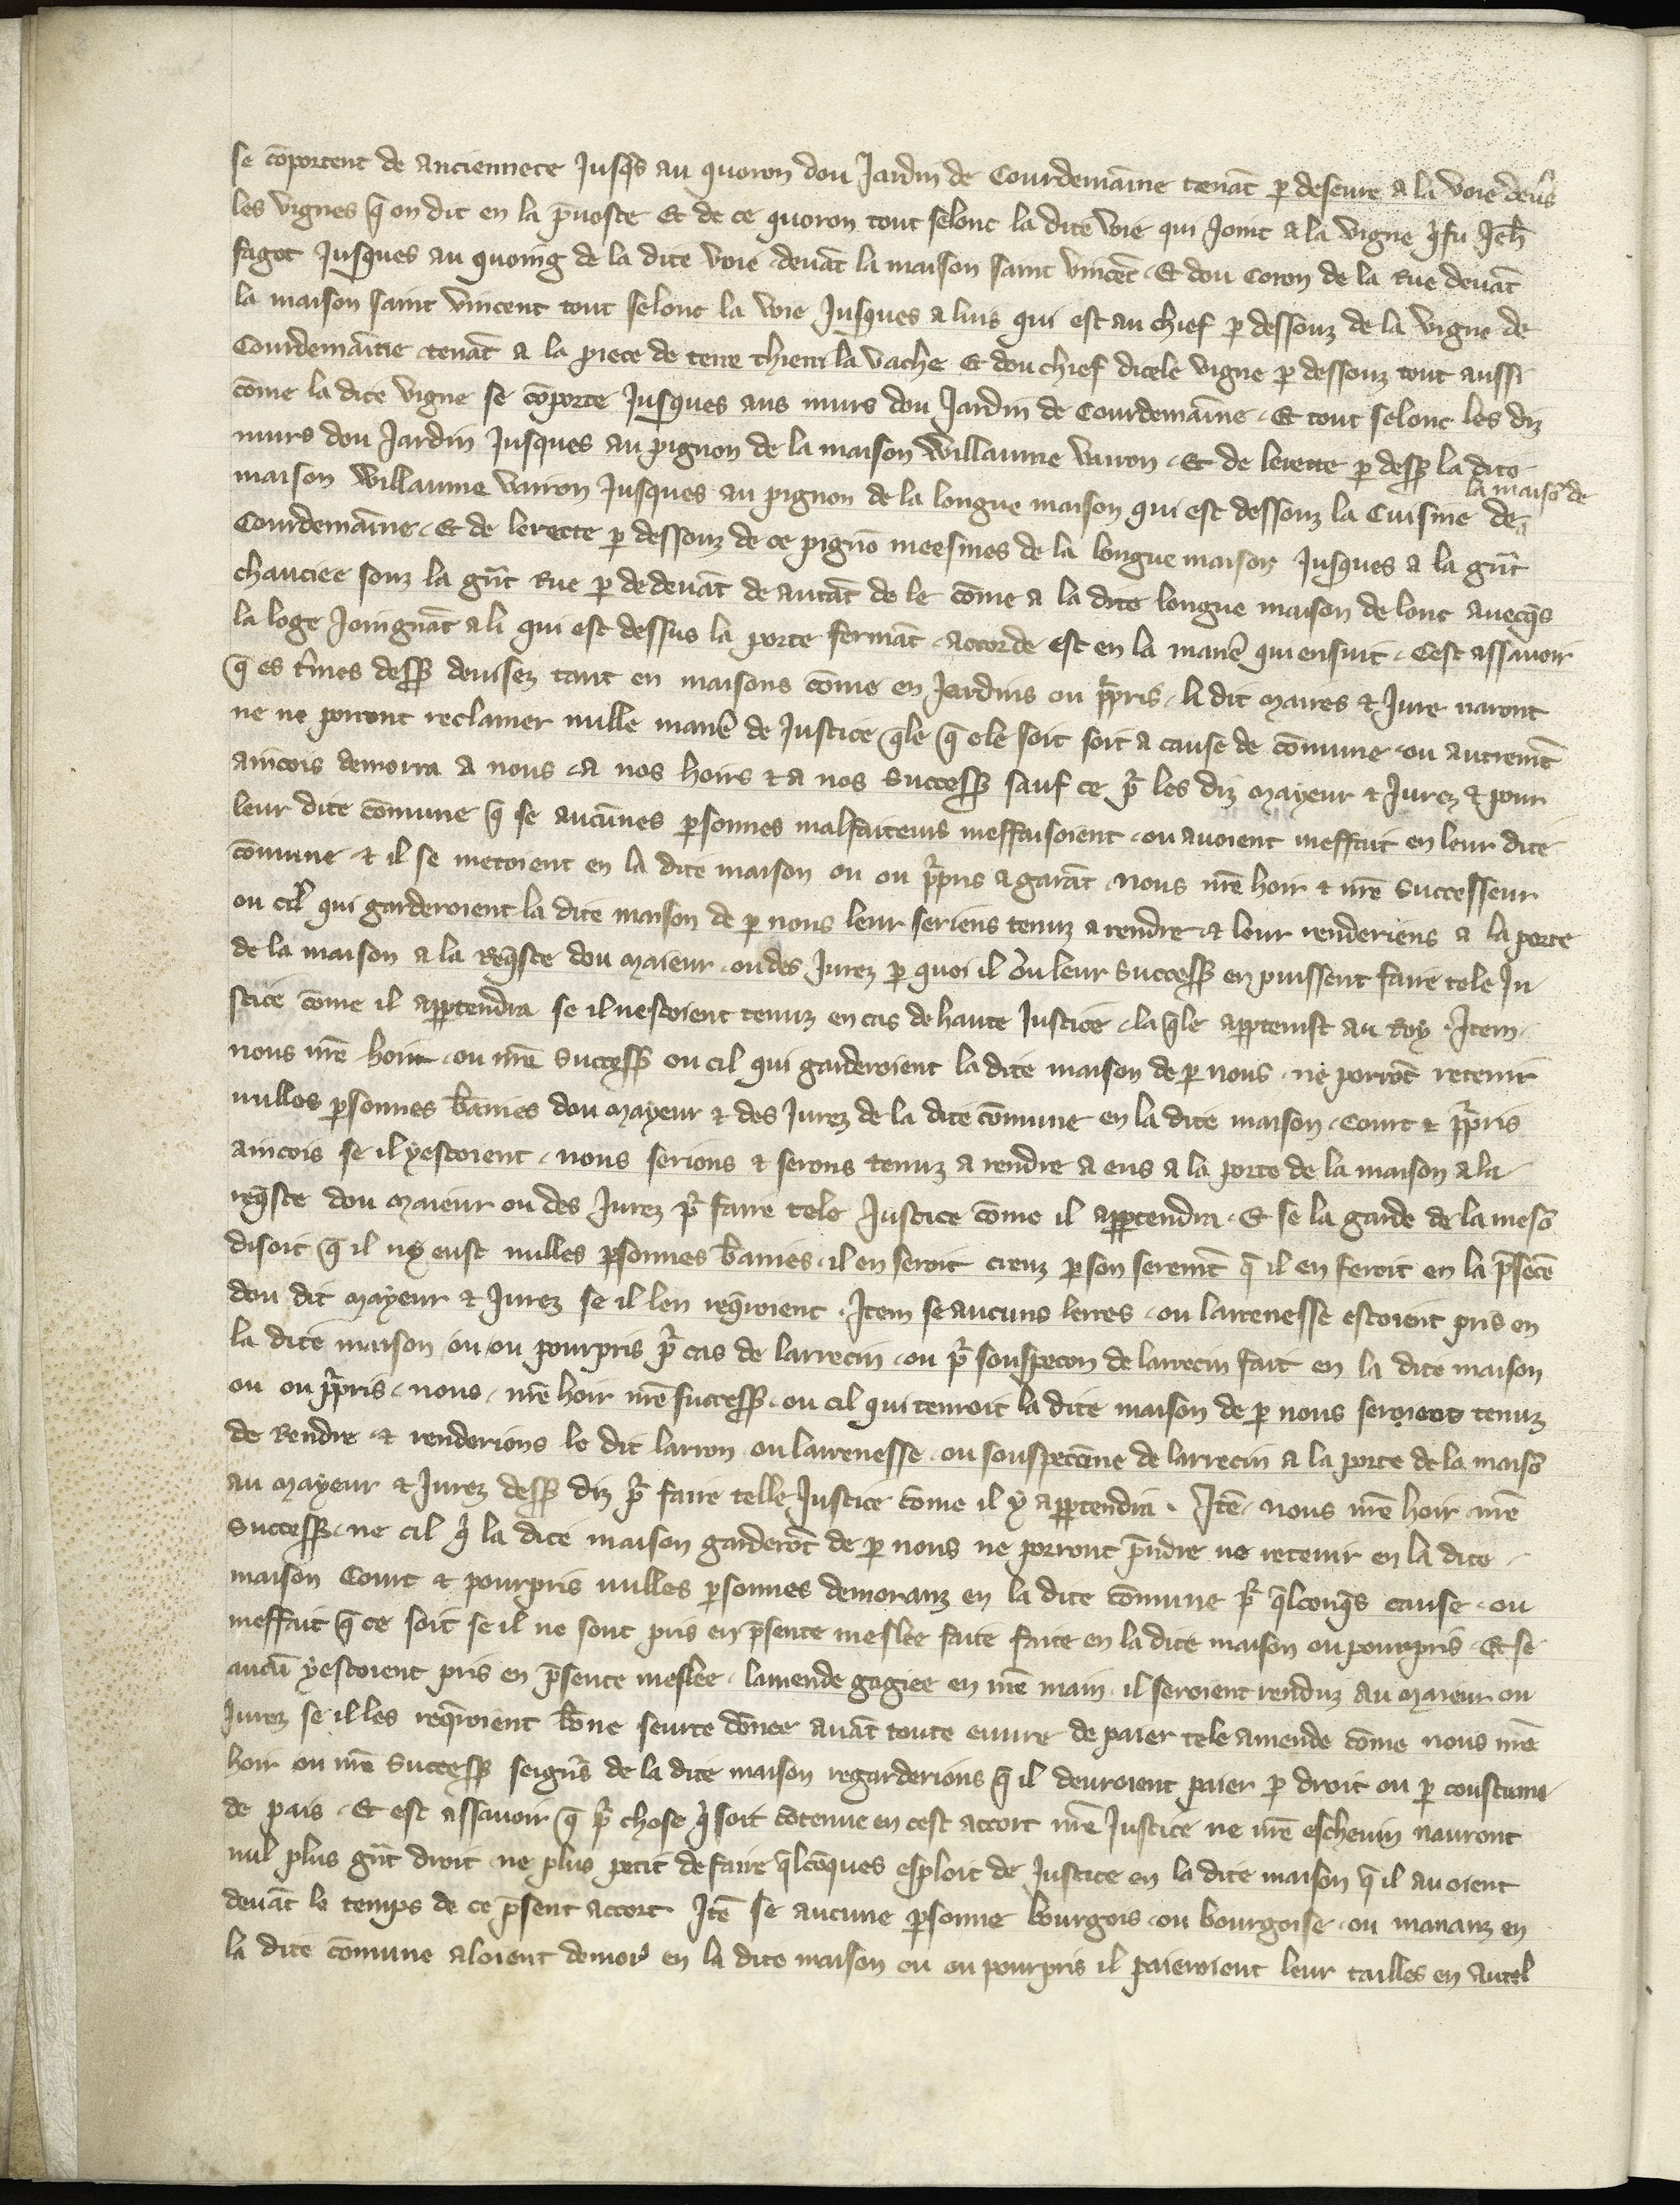 se cōportent de anciennete jusqs au quoron dou jardin de Courdemaine tenāt p deseure a la voie devs
les vignes q̄ on dit en la p̄voste Et de ce quoron tout selonc la dite voie qui joint a la vigne q̍ fu Jeh̄
fagot jusques au quoing de la dite voie devāt la maison saint vincēt . Et dou coron de la Rue devāt
la maison saint vincent tout selonc la voie jusques a luis qui est au chief p dessouz de la vigne de
Courdemaine tenāt a la piece de terre thieri la vache Et dou chief dicele vigne p dessouz tout aussi
cōme la dite vigne se cōporte jusques aus murs dou jardin de Courdemaine . Et tout selonc les diz
murs dou jardin jusques au pignon de la maison Willaume Vairon . Et de lerette p dess la dite
maison Willaume Vairon jusques au pignon de la longue maison qui est dessouz la Cuisine de la maisō de
Courdemaine . Et de lerette p dessouz de ce pignō meesmes de la longue maison jusques a la gn̄t
chauciee souz la gn̄t Rue p dedevāt de autāt de le cōme a la dite longue maison de lonc avecq̄s
la loge joingnāt a li qui est dessus la porte fermāt . accorde est en la manē qui ensuit . Cest assavoir
q̄ es t̄mes dess devisez tant en maisons cōme en jardins ou p̍pris . li dit maires & jure naront
ne ne porront reclamer nulle manē de justice q̄le q̄ ele soit soit a cause de cōmune ou autremēt
aincois demorra a nous . a nos hoirs & a nos success sauf ce p̍ les diz mayeur & jurez & pour
leur dite cōmune q̄ se aucunes psonnes malfaiteurs meffaisoient . ou avoient meffait en leur dite
cōmune & il se metoient en la dite maison ou ou p̍pris a garāt . nous nr̄e hoir & nr̄e successeur
ou cil qui garderoient la dite maison de p nous leur seriens tenuz a rendre & leur renderiens a la porte
de la maison a la req̄ste dou maieur . ou des jurez p quoi il ou leur success en puissent faire tele ju
stice cōme il apptendra se il nestoient tenuz en cas de haute justice . la q̄le apptenist au Roy . Item .
nous nr̄e hoir . ou nr̄e success ou cil qui garderoient la dite maison de p nous . ne porrōt retenir
nulles psonnes bānies dou mayeur & des jurez de la dite cōmune en la dite maison . court & p̍pris
aincois se il y estoient . nous serions & serons tenuz a rendre a eus a la porte de la maison a la
req̄ste dou maieur ou des jurez p̍ faire tele justice cōme il apptendra . Et se la garde de la mesō
disoit q̄ il ny eust nulles psonnes bānies . il en seroit creuz p son seremēt q̄ il en feroit en la p̄sēce
dou dit mayeur & jurez se il len req̄roient . Item se aucuns lerres . ou larrenesse estoient pris en
la dite maison ou ou pourpris p̍ cas de larrecin . ou p̍ souspecon de larrecin fait en la dite maison
ou ou p̍pris . nous . nr̄e hoir nr̄e success . ou cil qui tenroit la dite maison de p nous seroiens tenuz
de Rendre . & renderions le dit larron . ou larrenesse . ou souspecōne de larrecin a la porte de la maisō
au mayeur & jurez dess diz p̍ faire telle justice cōme il y apptendra . Itē . nous nr̄e hoir . nr̄e
success . ne cil q̍ la dite maison garderōt de p nous ne porront p̄ndre ne retenir en la dite
maison Court & pourpris nulles psonnes demoranz en la dite cōmune p̍ q̄lconq̄s cause . ou
meffait q̄ ce soit se il ne sont pris en p̄sente meslee faite faite en la dite maison ou pourpris . Et se
aucū y estoient pris en p̄sente meslee . lamende gagiee en nr̄e main . il seroient renduz au maieur ou
jurez se il les req̄roient bōne seurte dōnee avāt toute euvre de paier tele amende cōme nous nr̄e
hoir ou nr̄e success seign̄s de la dite maison regarderions q̄ il devroient paier p droit ou p coustume
de pais . Et est assavoir q̄ p̍ chose q̍ soit cōtenue en cest accort nr̄e justice ne nr̄e eschevin nauront
nul plus gn̄t droit . ne plus petit de faire q̄lcōques esploit de justice en la dite maison q̄ il avoient
devāt le temps de ce p̄sent accort Itē se aucune psonne bourgois . ou bourgoise . ou mananz en
la dite cōmune aloient demor̍ en la dite maison ou ou pourpris il paieroient leur tailles en autel